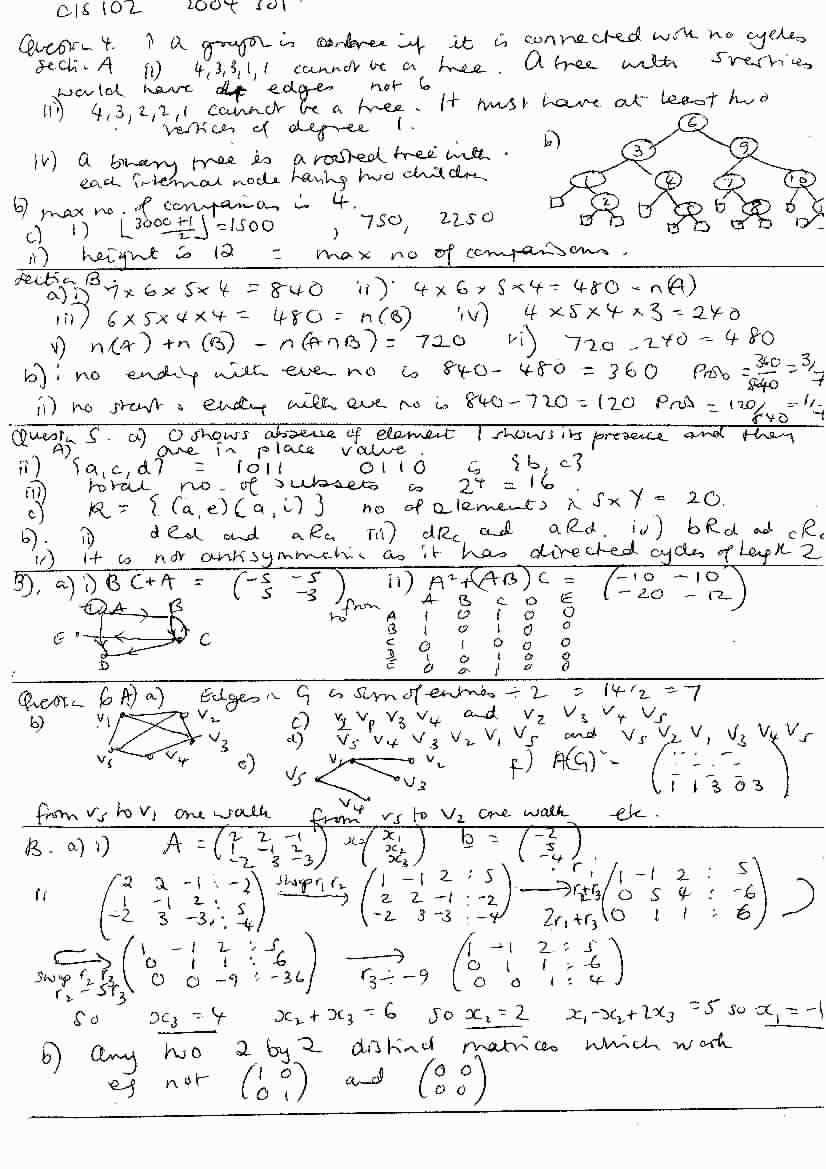 CIS 102 2004 sol
Question 4. i) a graph is a tree if it is connected with no cycles
Section A ii) 4,3,3,1,1 cannot be a tree. A tree with 5 vertices
would have 4 edges not 6
iii) 4,3,2,2,1 cannot be a tree. It must have at least two
vertices of degree 1.
iv) a binary tree is a rooted tree with
each internal node having two children
b)
6
3 9
1 4 7 10
2 8
b) max no. of comparisons is 4.
c) i) ⌊3000+1/2⌋ = 1500 , 750, 2250
ii) height is 12 = max no of comparisons.
Section B.
a) i) 7 × 6 × 5 × 4 = 840 ii) 4 × 6 × 5 × 4 = 480 = n(A)
iii) 6 × 5 × 4 × 4 = 480 = n(B) iv) 4 × 5 × 4 × 3 = 240
v) n(A) + n(B) - n(A∩B) = 720 vi) 720 - 240 = 480
b) i no ending with even no is 840 - 480 = 360 Prob = 360/840 = 3/7
ii) no start & ending with even no is 840 - 720 = 120 Prob = 120/840 = 1/7
Question 5. a) 0 shows absence of element 1 shows its presence and they
A) are in place value.
ii) {a,c,d} = 1011 0110 is {b, c}
iii) total no. of subsets is 2^4 = 16
c) R = {(a,e)(a,i)} no of elements in S × Y = 20.
b). i) dRd and aRa iii) dRc and aRd. iv) bRd and cRa
iv) it is not antisymmetric as it has directed cycles of length 2
B). a) i) BC + A = (-5 -5
5 -3) ii) A² + (AB)C = (-10 -10
-20 -12)
A B
E C
D
from
to
A B C D E
A 1 0 1 0 0
B 1 0 1 0 0
C 0 1 0 0 0
0 1 0
0 0 1 0 0
Question 6 A) a) Edges in G is sum of entries ÷ 2 = 14/2 = 7
b) v1 v2 v3 v4 v5
c) v1 v3 v4 and v2 v3 v4 v5
d) v5 v4 v3 v2 v1 v5 and v5 v2 v1 v3 v4 v5
e) v5 v1 v2 v3 v4
f) A(G) = (
1 1 3 0 3)
from v5 to v1 one walk from v5 to v2 one walk etc.
B. a) i) A = (2 2 -1
1 -1 2
-2 3 -3) x = (x1
x2
x3) b = (-2
5
-4)
ii (2 2 -1 : -2
1 -1 2 : 5
-2 3 -3 : -4) swap r1 r2 (1 -1 2 : 5
2 2 -1 : -2
-2 3 -3 : -4) r1
r2+r3
2r1+r3 (1 -1 2 : 5
0 5 4 : -6
0 1 1 : 6)
swap r2 r3
r2 - 5r3 (1 -1 2 : 5
0 1 1 : 6
0 0 -9 : -36) r3 ÷ -9 (1 -1 2 : 5
0 1 1 : 6
0 0 1 : 4)
so x3 = 4 x2 + x3 = 6 so x2 = 2 x1 - x2 + 2x3 = 5 so x1 = -1
b) any two 2 by 2 distinct matrices which work
eg not (1 0
0 1) and (0 0
0 0)